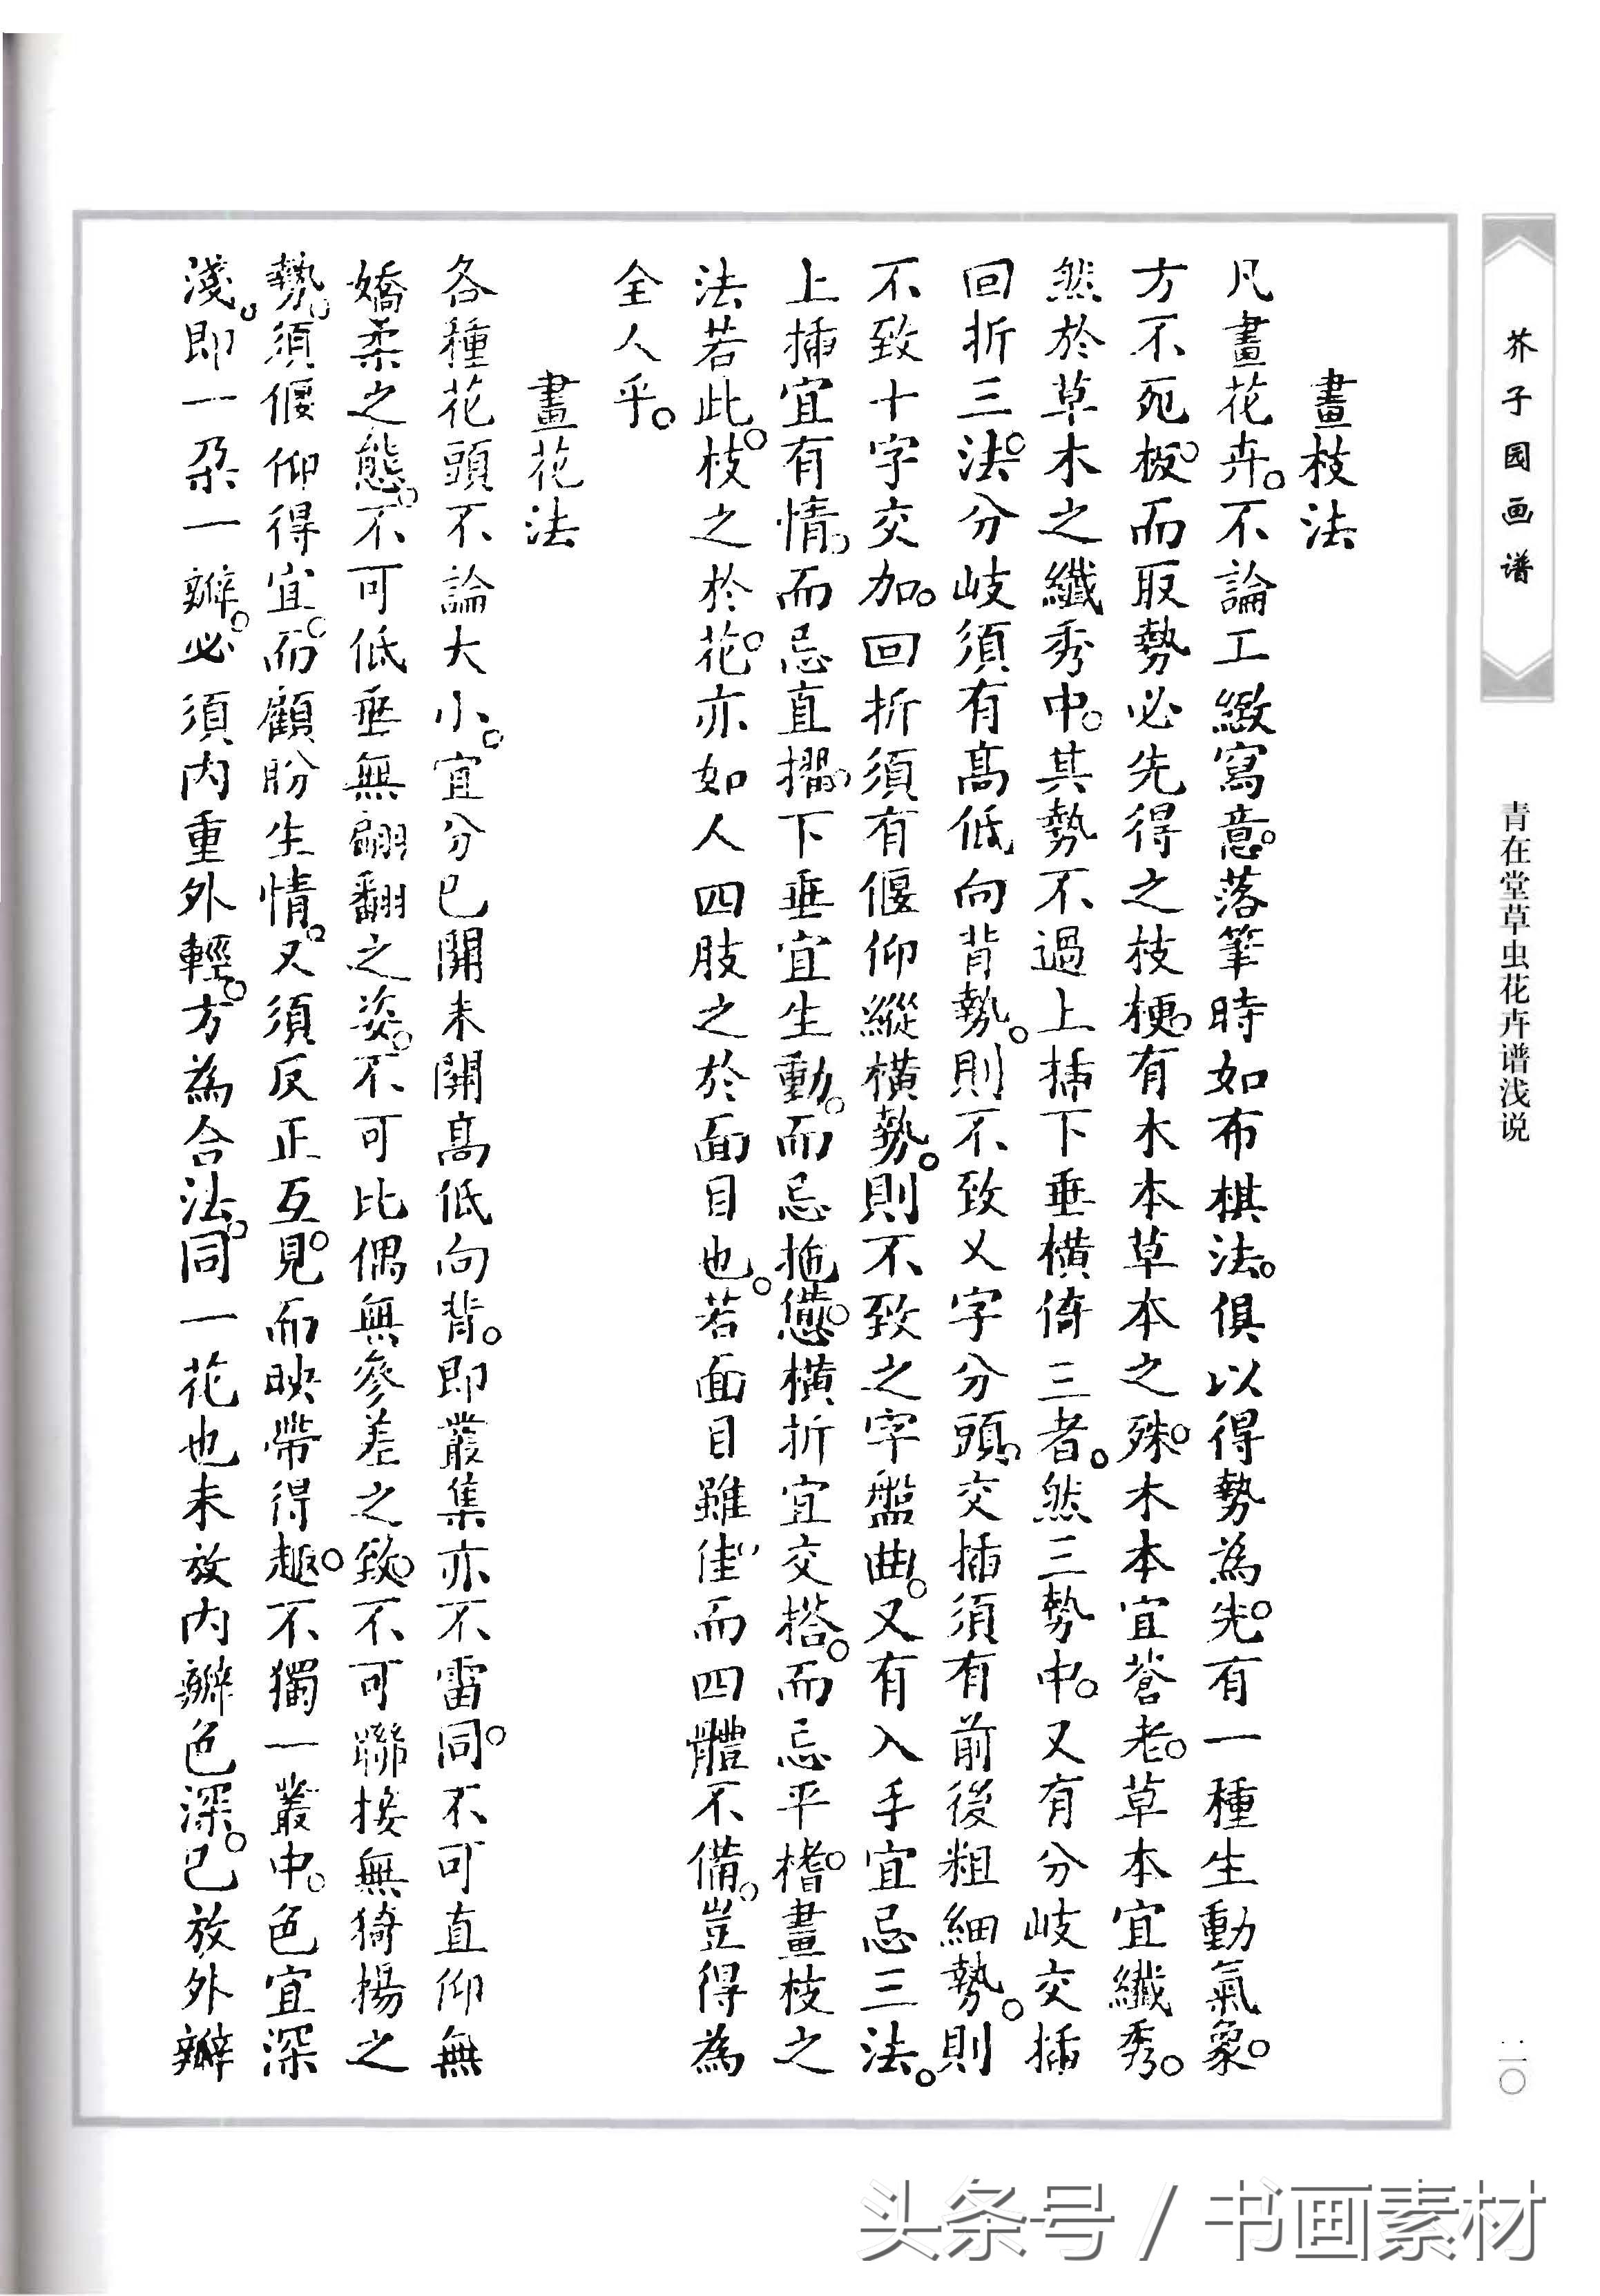 芥子园画谱
青在堂草虫花卉谱浅说
二〇
畫枝法
凡畫花卉。不論工緻寫意。落筆時如布棋法。俱以得勢為先。有一種生動氣象。
方不死板。而取勢必先得之枝梗。有木本草本之殊。木本宜蒼老。草本宜纖秀。
然於草木之纖秀中。其勢不過上插下垂橫倚三者。然三勢中。又有分岐交插
回折三法。分岐須有高低向背勢。則不致乂字分頭。交插須有前後粗細勢。則
不致十字交加。回折須有偃仰縱橫勢。則不致之字盤曲。又有入手宜忌三法。
上插宜有情。而忌直擢。下垂宜生動。而忌拖憊。橫折宜交搭。而忌平榰。畫枝之
法若此。枝之於花。亦如人四肢之於面目也。若面目雖佳。而四體不備。豈得為
全人乎。
畫花法
各種花頭不論大小。宜分已開未開高低向背。即叢集亦不雷同。不可直仰無
嬌柔之態。不可低垂無翩翻之姿。不可比偶無參差之致。不可聯接無猗揚之
勢。須偃仰得宜。而顧盼生情。又須反正互見。而映帶得趣。不獨一叢中。色宜深
淺。即一朶一瓣。必須內重外輕。方為合法。同一花也未放內瓣色深。已放外瓣
头条号 / 书画素材